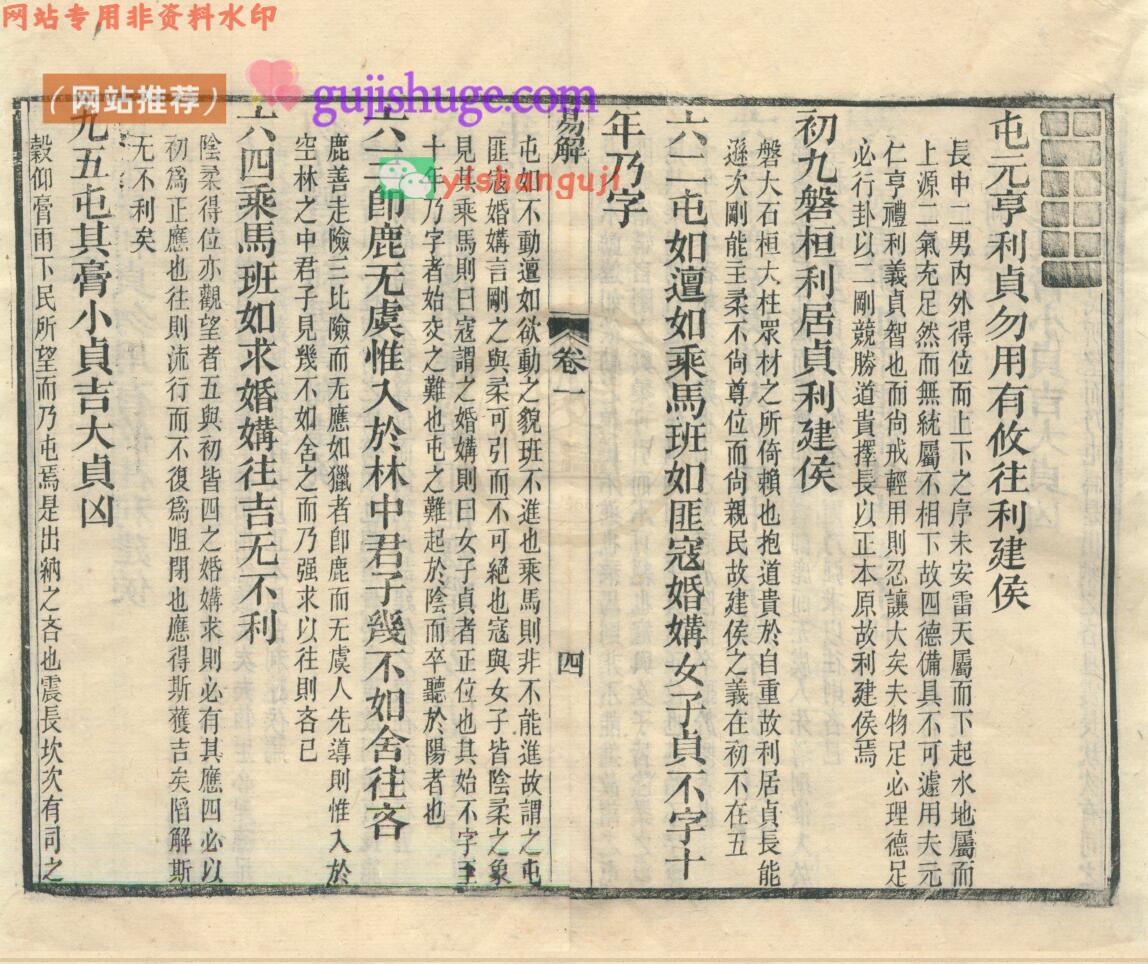 网站专用非资料水印
（网站推荐）
gujishuge.com
yishanguji
屯元亨利貞勿用有攸往利建侯
長中二男內外得位而上下之序未安雷天屬而下起水地屬而
上源二氣充足然而無統屬不相下故四德備具不可遽用夫元
仁亨禮利義貞智也而尙戒輕用則忍讓大矣夫物足必理德足
必行卦以二剛競勝道貴擇長以正本原故利建侯焉
初九磐桓利居貞利建侯
磐大石桓大柱眾材之所倚賴也抱道貴於自重故利居貞長能
遜次剛能主柔不尙尊位而尙親民故建侯之義在初不在五
六二屯如邅如乘馬班如匪寇婚媾女子貞不字十
年乃字
易解
卷一
四
屯如不動邅如欲動之貌班不進也乘馬則非不能進故謂之屯
匪寇婚媾言剛之與柔可引而不可絕也寇與女子皆陰柔之象
見其乘馬則曰寇謂之婚媾則曰女子貞者正位也其始不字至
十年乃字者始交之難也屯之難起於陰而卒聽於陽者也
六三卽鹿无虞惟入於林中君子幾不如舍往吝
鹿善走險三比險而无應如獵者卽鹿而无虞人先導則惟入於
空林之中君子見幾不如舍之而乃强求以往則吝已
六四乘馬班如求婚媾往吉无不利
陰柔得位亦觀望者五與初皆四之婚媾求則必有其應四必以
初爲正應也往則流行而不復爲阻閉也應得斯獲吉矣陷解斯
无不利矣
九五屯其膏小貞吉大貞凶
穀仰膏雨下民所望而乃屯焉是出納之吝也震長坎次有司之